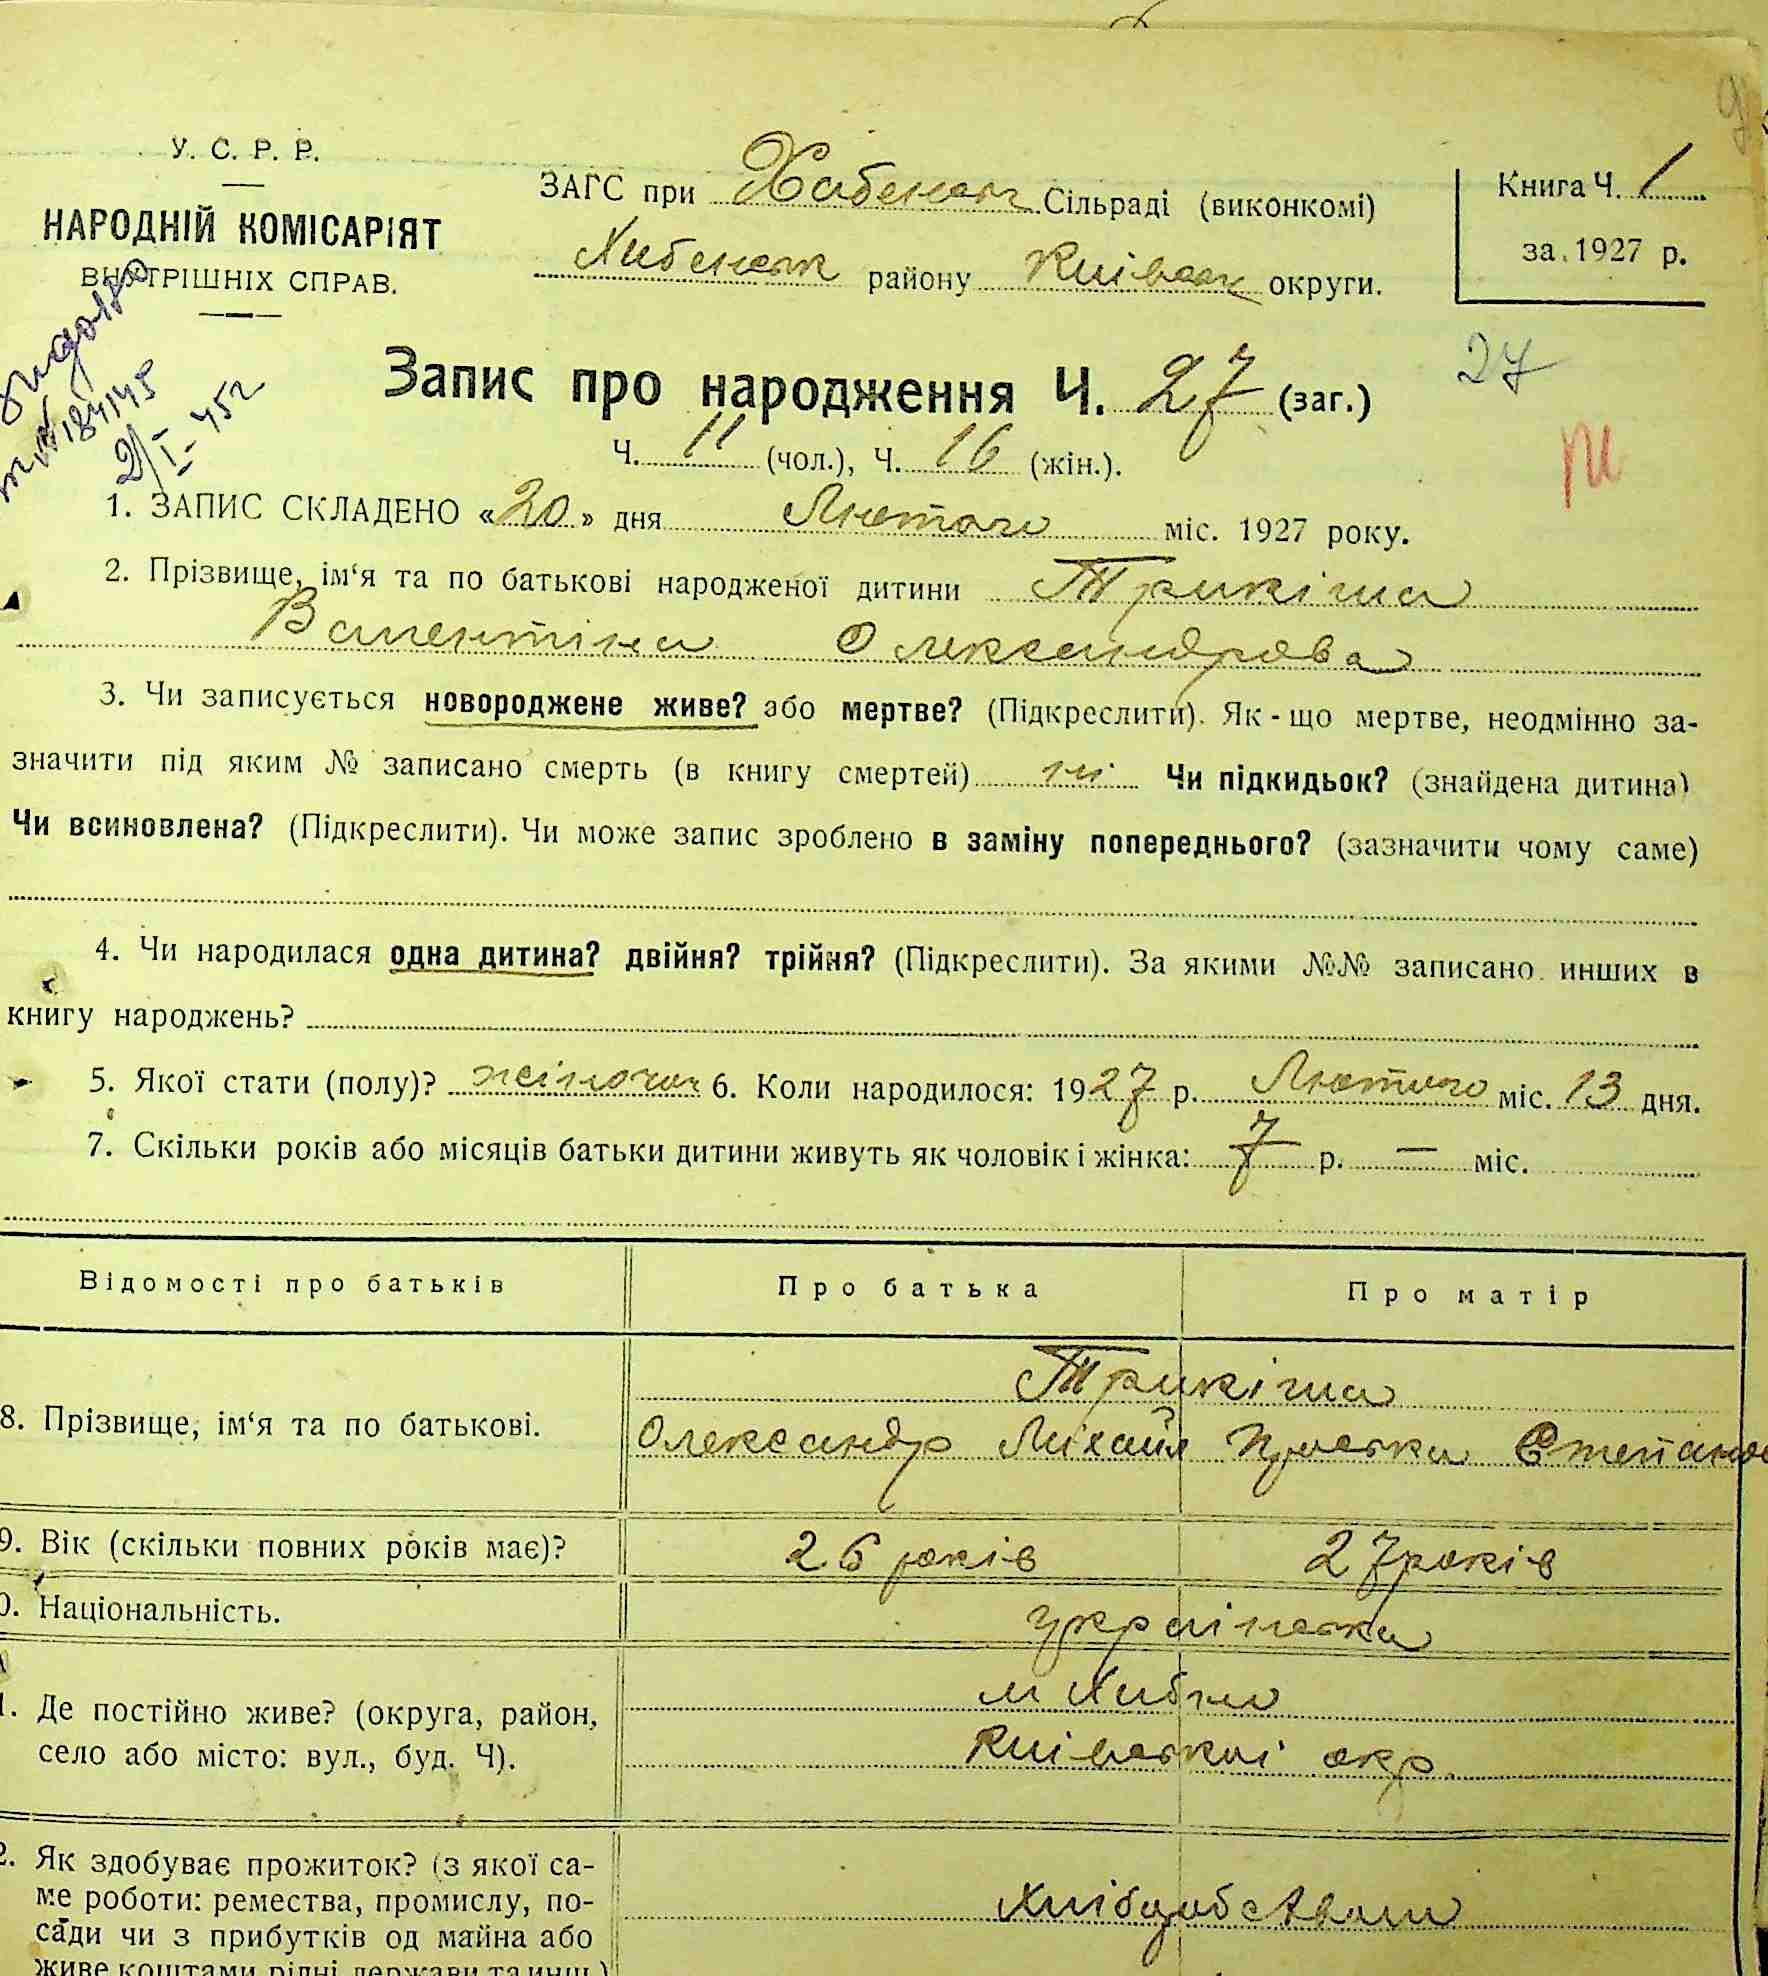 У. С. Р. Р.
НАРОДНІЙ КОМІСАРІЯТ
ВНУТРІШНІХ СПРАВ.
ЗАГС при Хабенськ Сільраді (виконкомі)
Хабенськ району Київськ округи.
Книга Ч. 1
за 1927 р.
N 184145
2/I-45г
Запис про народження Ч. 27 (заг.)
27
Ч. 11 (чол.), Ч. 16 (жін.).
1. ЗАПИС СКЛАДЕНО «20» дня Лютого міс. 1927 року.
2. Прізвище, ім‘я та по батькові народженої дитини Трикіша
Валентіна Олександрова
3. Чи записується новороджене живе? або мертве? (Підкреслити). Як - що мертве, неодмінно за-
значити під яким № записано смерть (в книгу смертей) ні Чи підкидьок? (знайдена дитина)
Чи всиновлена? (Підкреслити). Чи може запис зроблено в заміну попереднього? (зазначити чому саме)
4. Чи народилася одна дитина? двійня? трійня? (Підкреслити). За якими №№ записано инших в
книгу народжень?
5. Якої стати (полу)? жіночои 6. Коли народилося: 1927 р. Лютого міс. 13 дня.
7. Скільки років або місяців батьки дитини живуть як чоловік і жінка: 7 р. — міс.
Відомості про батьків Про батька Про матір
Трикіша
8. Прізвище, ім‘я та по батькові. Олександр Міхайл Прiська Степанов
9. Вік (скільки повних років має)? 26 років 27 років
0. Національність. українська
м Хабно
1. Де постійно живе? (округа, район,
село або місто: вул., буд. Ч). Київськиі окр
2. Як здобуває прожиток? (з якої са-
ме роботи: ремества, промислу, по-
сади чи з прибутків од майна або
живе коштами рідні держави та инш.)